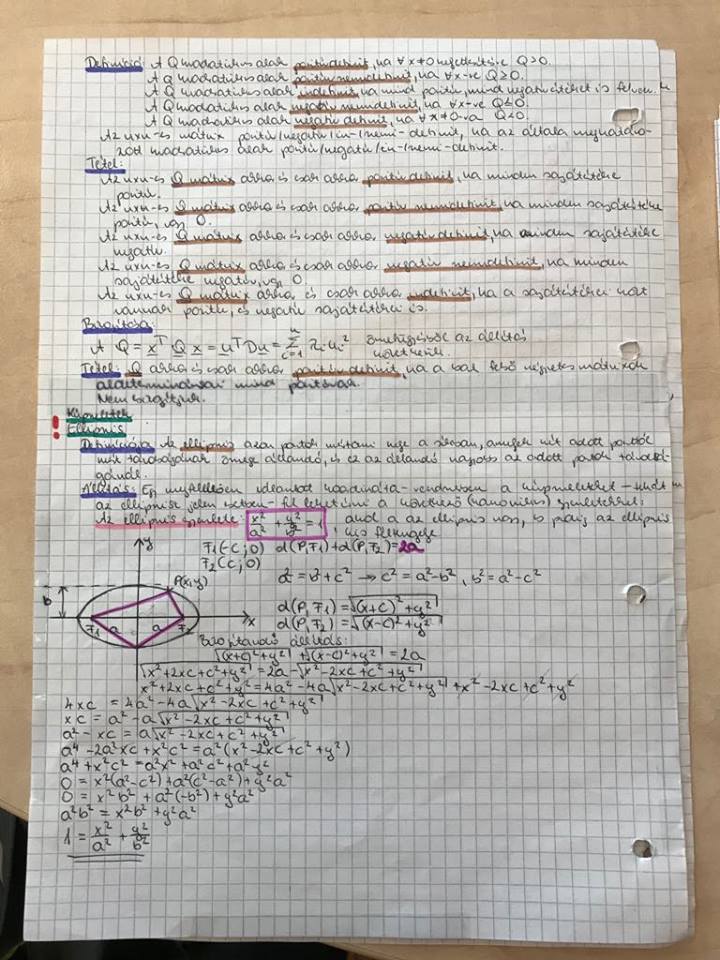 Definíció: A Q kvadratikus alak pozitív definit, ha ∀x≠0 esetére Q>0.
A Q kvadratikus alak pozitív szemidefinit, ha ∀x-re Q≥0.
A Q kvadratikus alak indefinit, ha mind pozitív, mind negatív értéket is felvesz.
A Q kvadratikus alak negatív szemidefinit, ha ∀x-re Q≤0.
A Q kvadratikus alak negatív definit, ha ∀x≠0-ra Q<0.
Az nxn-es mátrix pozitív/negatív/in-/szemi-definit, ha az általa meghatáro-
zott kvadratikus alak pozitív/negatív/in-/szemi-definit.
Tétel:
Az nxn-es Q mátrix akkor és csak akkor pozitív definit, ha minden sajátértéke
pozitív.
Az nxn-es Q mátrix akkor és csak akkor pozitív szemidefinit, ha minden sajátértéke
pozitív, vagy 0.
Az nxn-es Q mátrix akkor és csak akkor negatív definit, ha minden sajátértéke
negatív.
Az nxn-es Q mátrix akkor és csak akkor negatív szemidefinit, ha minden
sajátértéke negatív, vagy 0
Az nxn-es Q mátrix akkor és csak akkor indefinit, ha a sajátértékei közt
vannak pozitív, és negatív sajátértékei is.
Bizonyítása:
A Q = x^T Q x = u^T D u = Σ_{i=1}^{n} λi ui² összefüggésből az állítás
következik.
Tétel: Q akkor és csak akkor pozitív definit, ha a bal felső négyzetes mátrixok
aldeterminánsai mind pozitívak.
Nem bizonyítjuk.
! Kúpszeletek
! Ellipszis
Definíciója: Az ellipszis azon pontok mértani helye a síkban, amelyek két adott ponttól
mért távolságának összege állandó, és ez az állandó nagyobb az adott pontok távolsá-
gánál.
Állítás: Egy megfelelően választott koordináta-rendszerben a kúpszeleteket
az ellipszist jelen esetben - fel lehet írni a következő (kanonikus) egyenlettel:
Az ellipszis egyenlete: x²/a² + y²/b² = 1 ahol a az ellipszis nagy, b pedig az ellipszis
kis féltengelye
y F₁(-c;0) d(P,F₁)+d(P,F₂)=2a
F₂(c;0)
P(x;y) a²=b²+c² → c²=a²-b², b²=a²-c²
b
F₁ a a F₂ x d(P,F₁)=√((x+c)²+y²)
d(P,F₂)=√((x-c)²+y²)
Bizonyítandó állítás:
√((x+c)²+y²) + √((x-c)²+y²) = 2a
√(x²+2xc+c²+y²) = 2a-√(x²-2xc+c²+y²)
x²+2xc+c²+y² = 4a²-4a√(x²-2xc+c²+y²) + x²-2xc+c²+y²
4xc = 4a²-4a√(x²-2xc+c²+y²)
xc = a²-a√(x²-2xc+c²+y²)
a²-xc = a√(x²-2xc+c²+y²)
a⁴-2a²xc+x²c² = a²(x²-2xc+c²+y²)
a⁴+x²c² = a²x²+a²c²+a²y²
0 = x²(a²-c²)+a²(c²-a²)+y²a²
0 = x²b²+a²(-b²)+y²a²
a²b² = x²b²+y²a²
1 = x²/a² + y²/b²